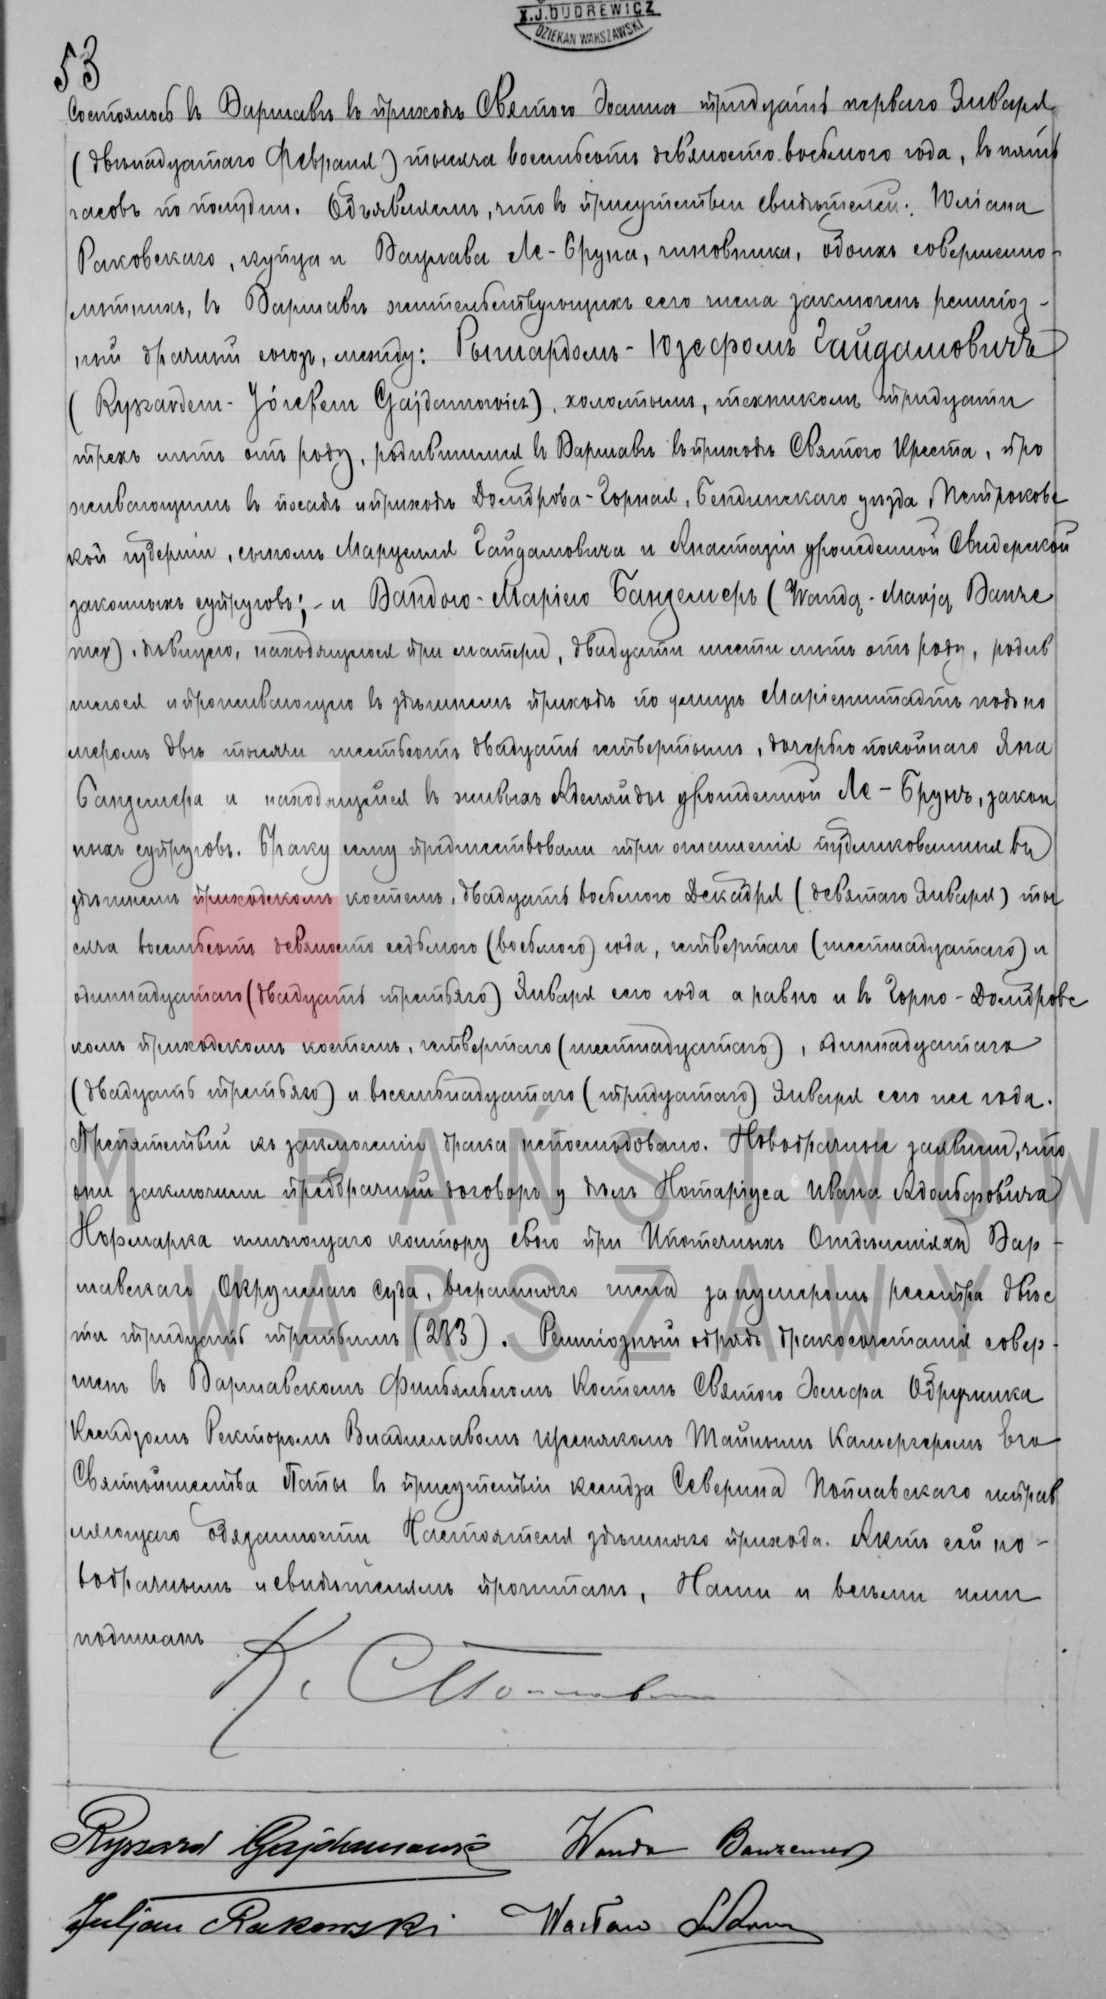 X.J.DUDREWICZ
DZIEKAN WARSZAWSKI
53
Состоялось въ Варшавѣ въ приходѣ Святого Іоанна тридцать перваго Января
(двѣнадцатаго Февраля) тысяча восемьсотъ девяносто восьмого года, въ пять
часовъ по полудни. Объявляемъ, что въ присутствіи свидѣтелей: Юліана
Раковскаго, купца и Вацлава Ле-Бруна, чиновника, обоихъ совершенно-
лѣтнихъ, въ Варшавѣ жительствующихъ сего числа заключенъ религіоз-
ный брачный союзъ, между: Рышардомъ-Юзефомъ Гайдамовичъ
(Ryszardem-Józefem Gajdamowicz), холостымъ, техникомъ тридцати
трехъ лѣтъ отъ роду, родившимся въ Варшавѣ въ приходѣ Святого Креста, про
живающимъ въ посадѣ и приходѣ Домброва-Горная, Бендинскаго уѣзда, Петроковс
кой губерніи, сыномъ Марцелія Гайдамовича и Анастазіи урожденной Свидерской
законныхъ супруговъ; - и Вандою-Маріею Банземеръ (Wandą-Marją Banze
mer), дѣвицею, находящеюся при матери, двадцати шести лѣтъ отъ роду, родив
шеюся и проживающую въ здѣшнемъ приходѣ по улицѣ Маріенштадтъ подъ но
меромъ двѣ тысячи шестьсотъ двадцать четвертымъ, дочерью покойнаго Яна
Банземера и находящейся въ живыхъ Аделяйды урожденной Ле-Брунъ, закон
ныхъ супруговъ. Браку сему предшествовали три оглашенія публикованныя въ
здѣшнемъ приходскомъ костелѣ, двадцать восьмого Декабря (девятаго Января) ты
сяча восемьсотъ девяносто седьмого (восьмого) года, четвертаго (шестнадцатаго) и
одиннадцатаго (двадцать третьяго) Января сего года а равно и въ Горно-Домбровс
комъ приходскомъ костелѣ, четвертаго (шестнадцатаго), одиннадцатаго
(двадцать третьяго) и восемьнадцатаго (тридцатаго) Января сего же года.
Препятствій къ заключенію брака непослѣдовало. Новобрачные заявили, что
они заключили предбрачный договоръ у дѣлъ Нотаріуса Ивана Адольфовича
Нормарка имѣющаго контору свою при Ипотечныхъ Отдѣленіяхъ Вар-
шавскаго Окружнаго Суда, вчерашняго числа за нумеромъ реестра двѣс
ти тридцать третьимъ (233). Религіозный обрядъ бракосочетанія совер-
шенъ въ Варшавскомъ Филіальномъ Костелѣ Святого Іосифа Обручника
Ксендзомъ Ректоромъ Владиславомъ Тайнымъ Камергеромъ Его
Святѣйшества Папы въ присутствіи ксендза Северина Поплавскаго исправ
ляющаго обязанности Настоятеля здѣшняго прихода. Актъ сей но-
вобрачнымъ и свидѣтелямъ прочитанъ, Нами и всѣми ими
подписанъ
Ryszard Gajdamowicz Wanda Banzemer
Juljan Rakowski Wacław LeBrun
UM PAŃSTWOW
WARSZAWY